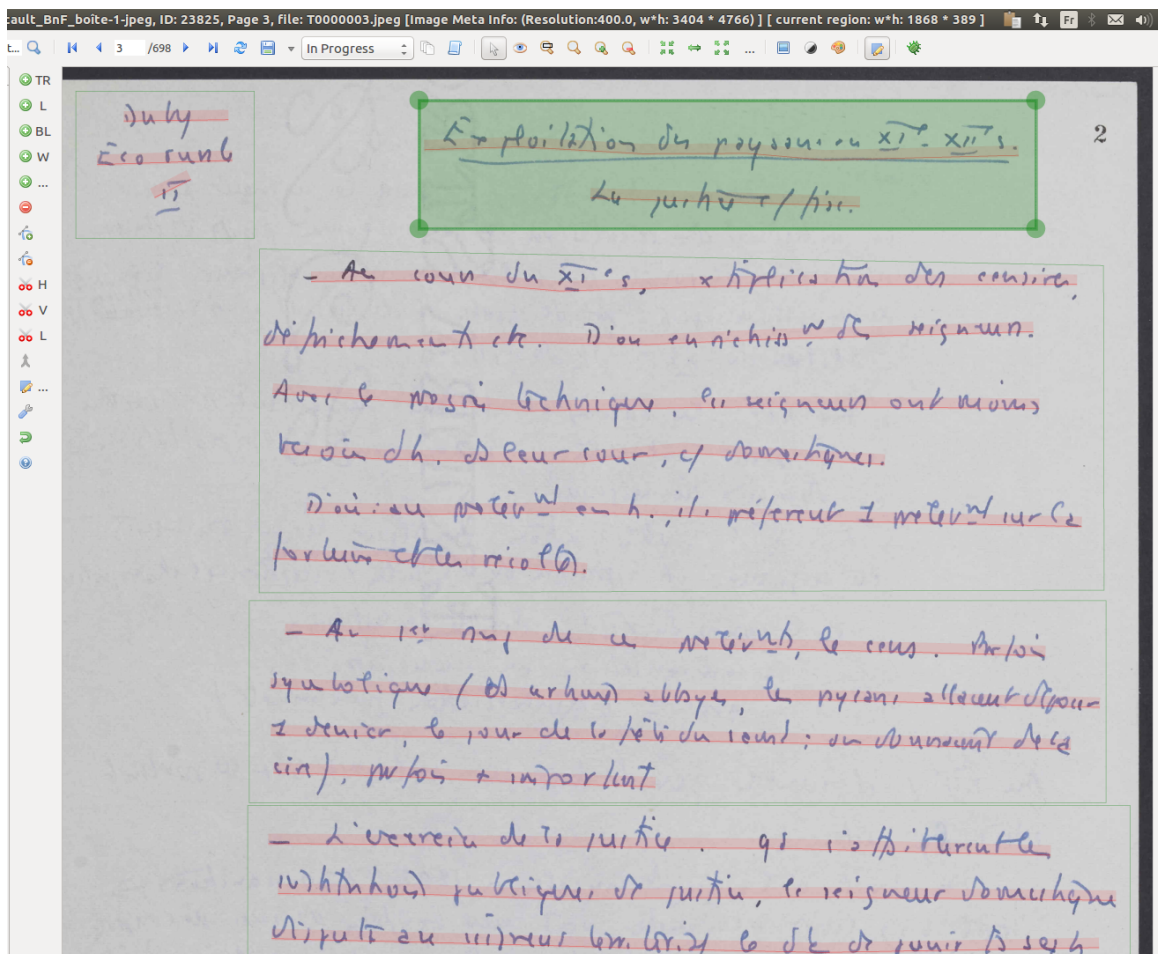 cault_BnF_boite-1-jpeg, ID: 23825, Page 3, file: T0000003.jpeg [Image Meta Info: (Resolution:400.0, w*h: 3404 * 4766) ] [ current region: w*h: 1868 * 389 ]
Fr
t... 3 /698 In Progress ...
TR
L
BL
W
...
H
V
L
...
Duby
Eco rurale
II
2
Exploitation du paysan au XIe - XIIe s.
La justice et / fisc.
- Au cours du XIe s, x tiplication des censives,
défrichements etc. D'où enrichisst des seigneurs.
Avec le progrès technique, les seigneurs ont moins
besoin d'h. ds leur cour, c/ domestiques.
D'où : au prélèvt en h., ils préfèrent 1 prélèvt sur la
fortune et les récoltes.
- Au 1er rang de ces prélèvts, le cens. Parfois
symbolique (ds certaines abbayes, les paysans allaient déposer
1 denier, le jour de la fête du saint ; ou donnaient de la
cire), parfois + important
- L'exercice de la justice. qd s'effritèrent les
institutions publiques de justice, le seigneur domestique
disputa au seigneur le dt de punir ds ses h